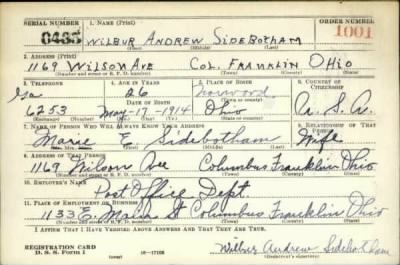 SERIAL NUMBER 1. NAME (Print) ORDER NUMBER
0485 WILBUR ANDREW SIDEBOTHAM 1001
(First) (Middle) (Last)
2. ADDRESS (Print)
1169 WILSON AVE COL. FRANKLIN OHIO
(Number and street or R. F. D. number) (Town) (County) (State)
3. TELEPHONE 4. AGE IN YEARS 5. PLACE OF BIRTH 6. COUNTRY OF CITIZENSHIP
26 Norwood
DATE OF BIRTH (Town or county)
6253 May-17-1914 Ohio U. S. A.
(Exchange) (Number) (Mo.) (Day) (Yr.) (State or country)
7. NAME OF PERSON WHO WILL ALWAYS KNOW YOUR ADDRESS 8. RELATIONSHIP OF THAT PERSON
Marie E Sidebotham Wife
(First) (Middle) (Last)
9. ADDRESS OF THAT PERSON
1169 Wilson Ave Columbus Franklin Ohio
(Number and street or R. F. D. number) (Town) (County) (State)
10. EMPLOYER'S NAME
Post Office Dept
11. PLACE OF EMPLOYMENT OR BUSINESS
1133 E. Main St Columbus Franklin Ohio
(Number and street or R. F. D. number) (Town) (County) (State)
I AFFIRM THAT I HAVE VERIFIED ABOVE ANSWERS AND THAT THEY ARE TRUE.
REGISTRATION CARD
D. S. S. Form 1 (over) 16-17105 Wilbur Andrew Sidebotham
(Registrant's signature)